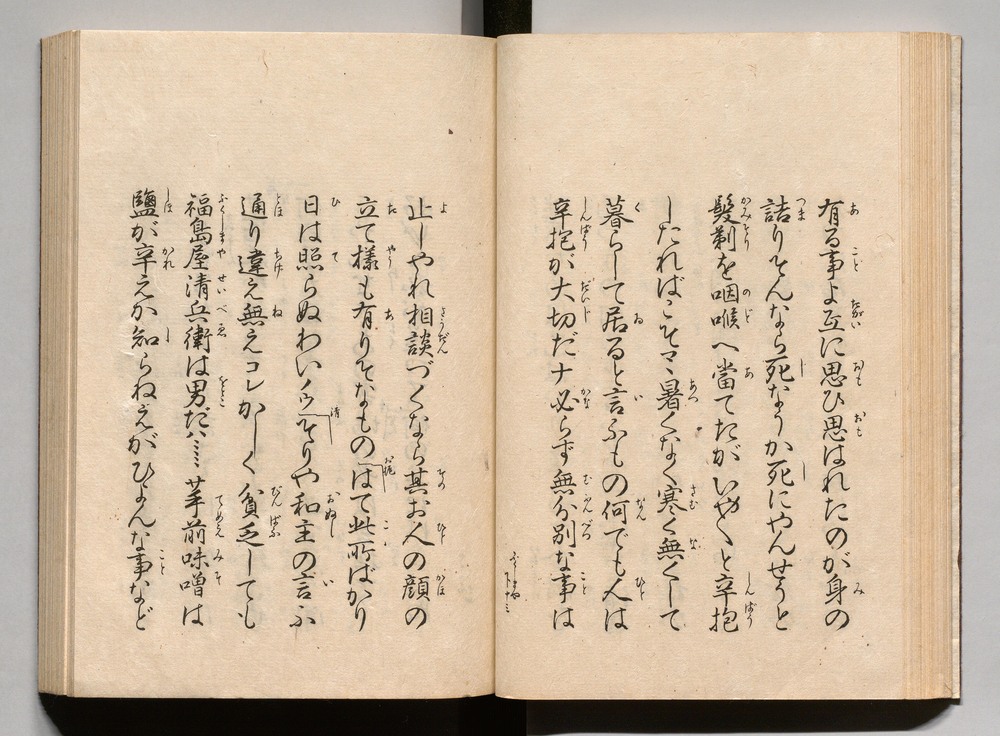 有る事よ互に思ひ思はれたのが身の
詰りそんなら死なうか死にやんせうと
髪剃を咽喉へ當てたがいや〱と辛抱
したればこそマヽ暑くなく寒く無くして
暮らして居ると言ふもの何でも人は
辛抱が大切だナ必らず無分別な事は
止しやれ相談づくなら其お人の顔の
立て様も有りそなものはて此所ばかり
日は照らぬわいノウそりや和主の言ふ
通り違え無えコレかしく貧乏しても
福島屋清兵衛は男だハヽヽ手前味噌は
鹽が辛えか知らねえがひよんな事など